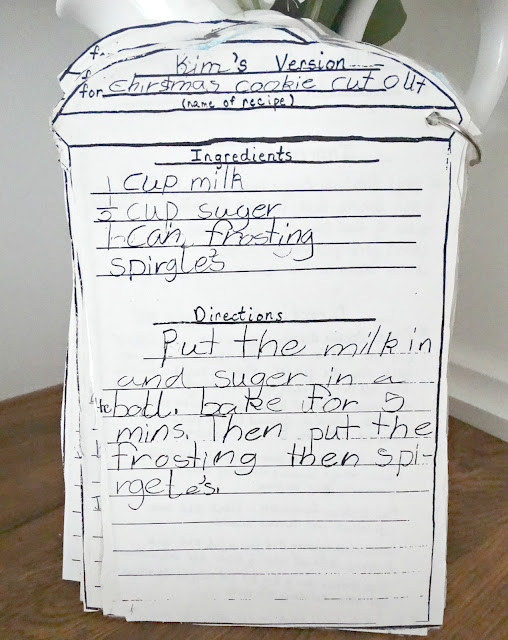 f
f Kim's Version
for Chirstmas cookie cut out
(name of recipe)
Ingredients
1 cup milk
1/2 cup suger
1-Can, frosting
spirgle's
Directions
Put the milk in
and suger in a
boll. bake for 5
mins. Then put the
frosting then spi-
rgele's.